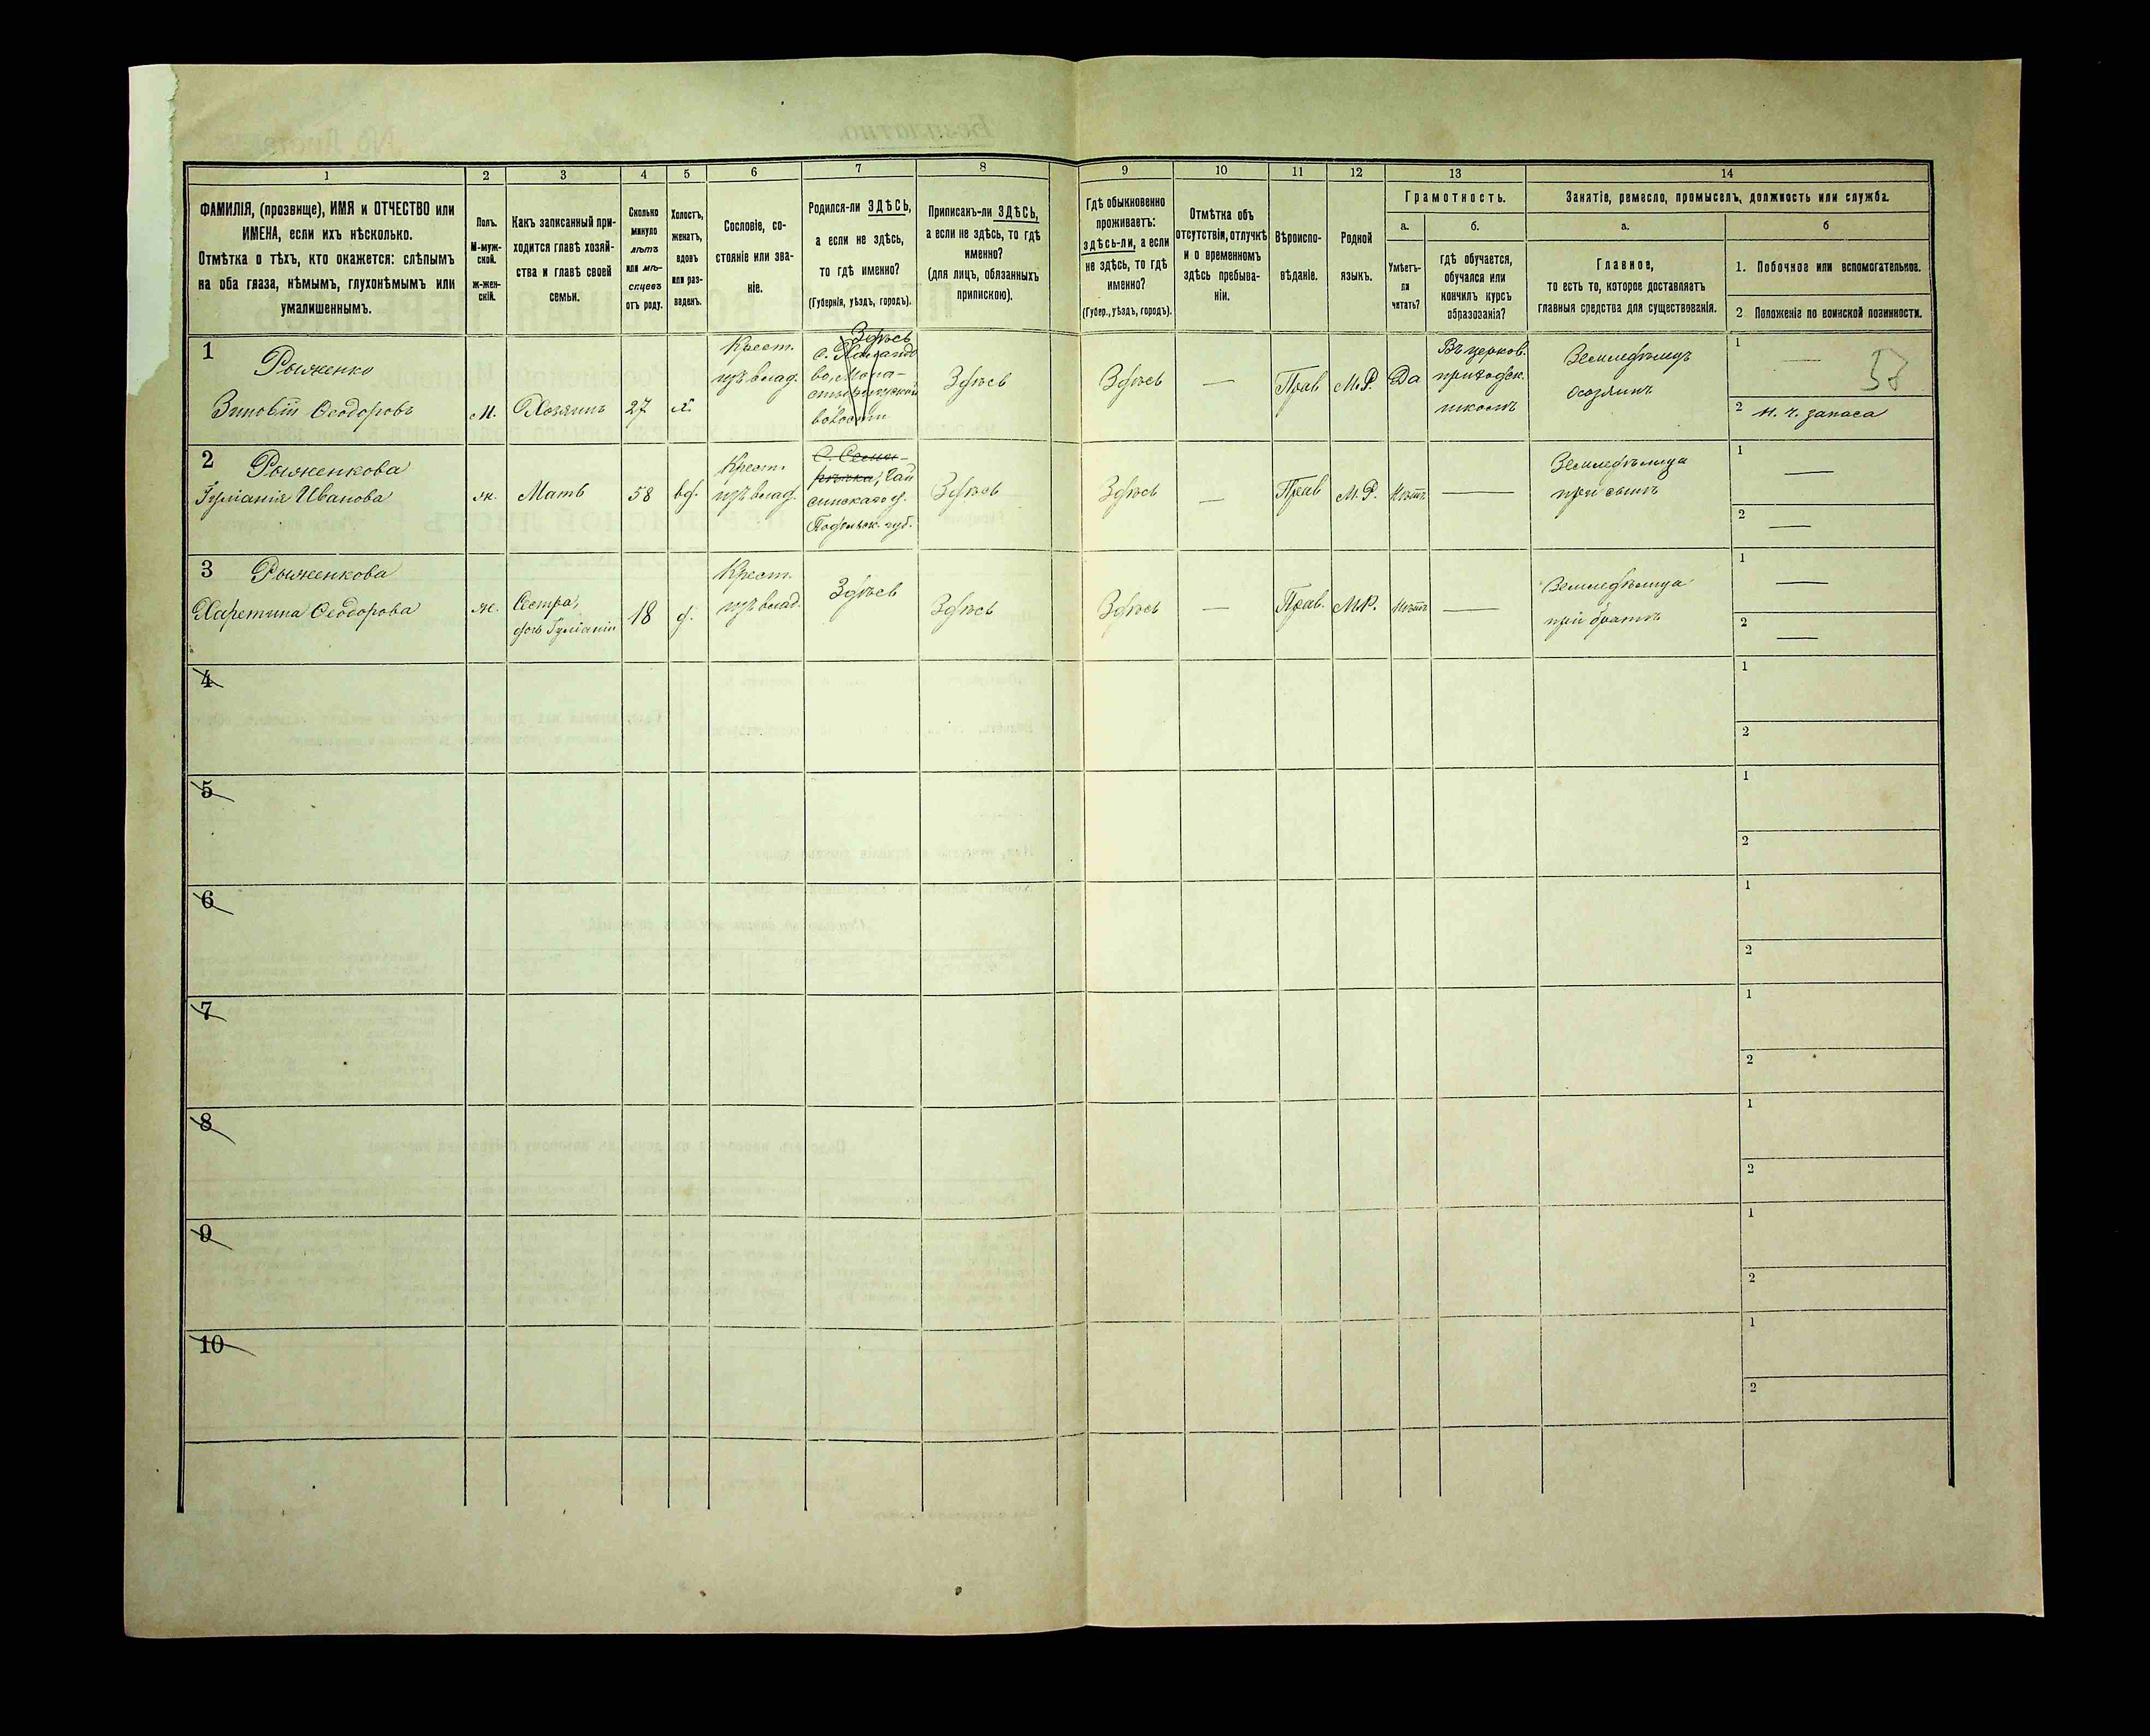 1
2
3
4
5
6
7
8
9
10
11
12
13
14
ФАМИЛІЯ, (прозвище), ИМЯ и ОТЧЕСТВО или
ИМЕНА, если ихъ нѣсколько.
Отмѣтка о тѣхъ, кто окажется: слѣпымъ
на оба глаза, нѣмымъ, глухонѣмымъ или
умалишеннымъ.
Полъ.
М-муж-
ской.
ж-жен-
скій.
Какъ записанный при-
ходится главѣ хозяй-
ства и главѣ своей
семьи.
Сколько
минуло
лѣтъ
или мѣ-
сяцевъ
отъ роду.
Холостъ,
женатъ,
вдовъ
или раз-
веденъ.
Сословіе, со-
стояніе или зва-
ніе.
Родился-ли ЗДѢСЬ,
а если не здѣсь,
то гдѣ именно?
(Губернія, уѣздъ, городъ).
Приписанъ-ли ЗДѢСЬ,
а если не здѣсь, то гдѣ
именно?
(для лицъ, обязанныхъ
припискою).
Гдѣ обыкновенно
проживаетъ:
здѣсь-ли, а если
не здѣсь, то гдѣ
именно?
(Губер., уѣздъ, городъ).
Отмѣтка объ
отсутствіи, отлучкѣ
и о временномъ
здѣсь пребыва-
ніи.
Вѣроиспо-
вѣданіе.
Родной
языкъ.
Грамотность.
а.
б.
Умѣетъ-
ли
читать?
гдѣ обучается,
обучался или
кончилъ курсъ
образованія?
Занятіе, ремесло, промыселъ, должность или служба.
а.
б
Главное,
то есть то, которое доставляетъ
главныя средства для существованія.
1. Побочное или вспомогательное.
2 Положеніе по воинской повинности.
1
Рыженко
Зиновій Ѳеодоровъ
м.
Хозяинъ
27
х.
Крест.
изъ влад.
Здѣсь
с.
волости
Здѣсь
Здѣсь
—
Прав
М.Р.
Да
Въ церков.
приходск.
школѣ
Земледѣлецъ
хозяинъ
1 —
58
2 н. ч. запаса
2
Рыженкова
Іуліанія Иванова
ж.
Мать
58
вд.
Крест.
изъ влад.
Гай
синскаго у.
Подольск. губ.
Здѣсь
Здѣсь
—
Прав
М.Р.
Нѣтъ
—
Земледѣлица
при сынѣ
1 —
2 —
3
Рыженкова
Харетина Ѳеодорова
ж.
Сестра,
дочь Іуліаніи
18
д.
Крест.
изъ влад.
Здѣсь
Здѣсь
Здѣсь
—
Прав.
М.Р.
Нѣтъ
—
Земледѣлица
при братѣ
1 —
2 —
4
1
2
5
1
2
6
1
2
7
1
2
8
1
2
9
1
2
10
1
2